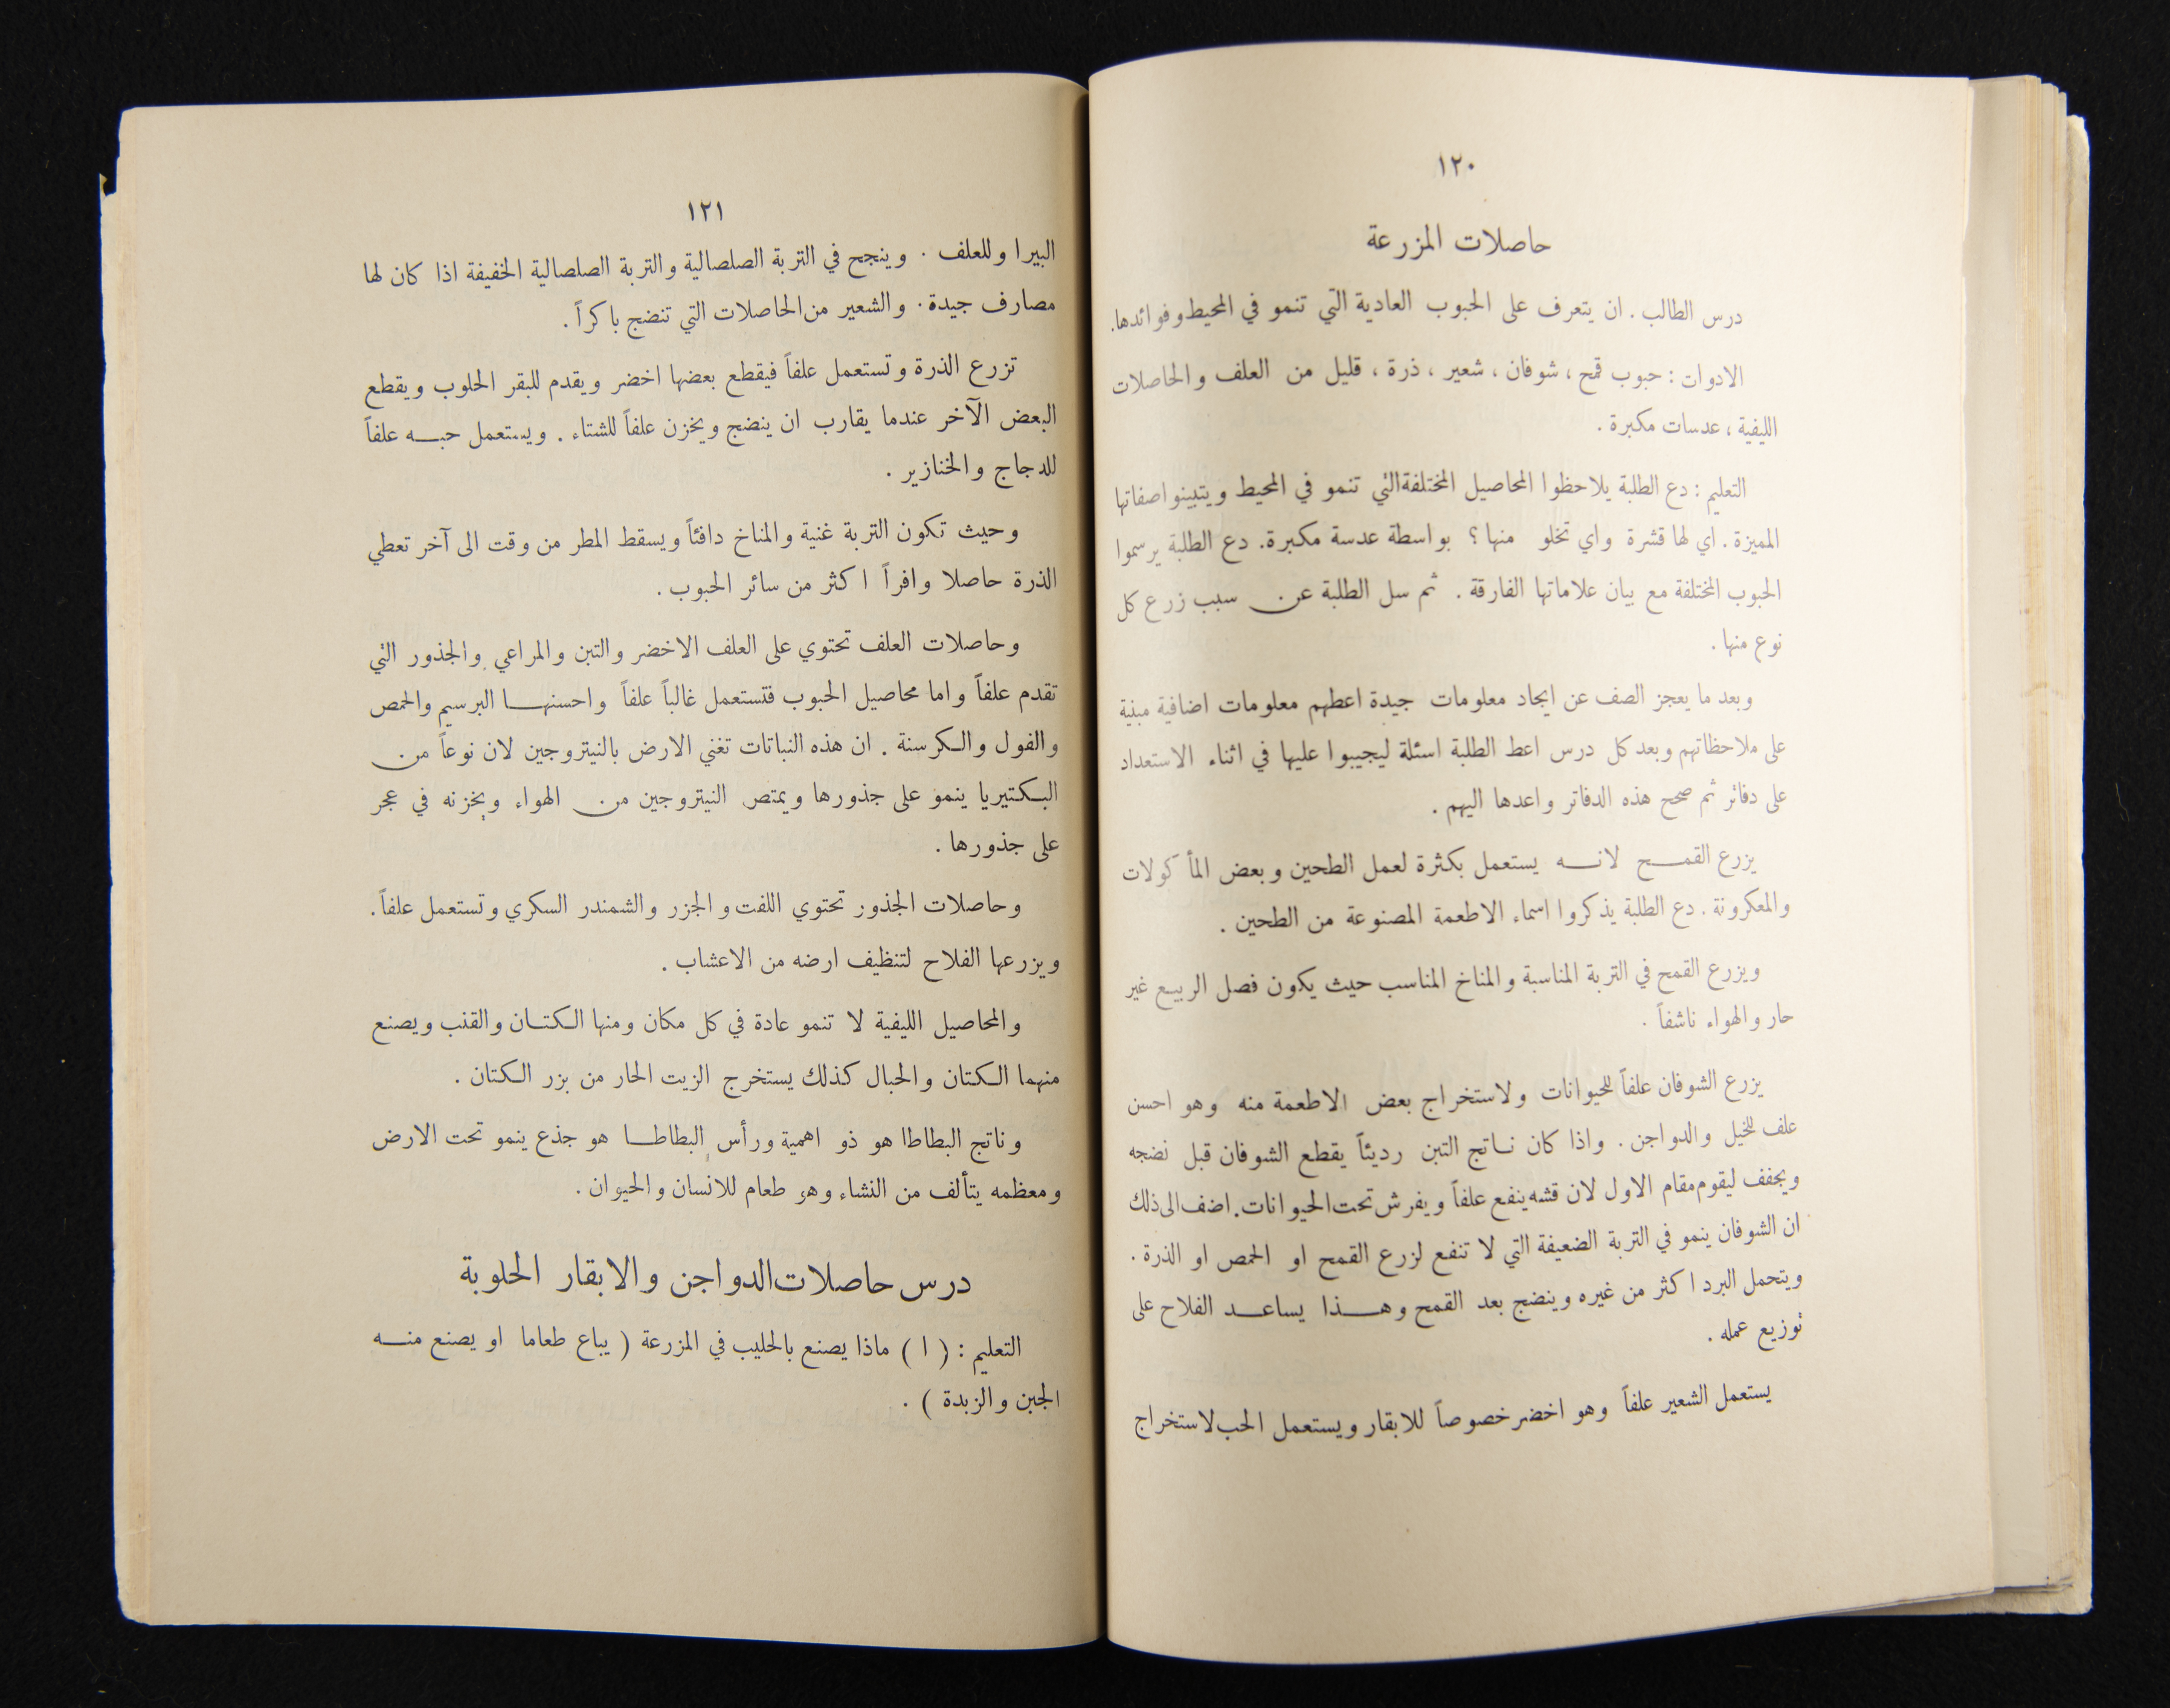 ١٢٠
حاصلات المزرعة
درس الطالب . ان يتعرف على الحبوب العادية التي تنمو في المحيط وفوائدها.
الادوات : حبوب قمح ، شوفان ، شعير ، ذرة ، قليل من العلف والحاصلات
الليفية ، عدسات مكبرة .
التعليم : دع الطلبة يلاحظوا المحاصيل المختلفة التي تنمو في المحيط ويتبينوا صفاتها
المميزة . اي لها قشرة واي تخلو منها ؟ بواسطة عدسة مكبرة. دع الطلبة يرسموا
الحبوب المختلفة مع بيان علاماتها الفارقة . ثم سل الطلبة عن سبب زرع كل
نوع منها .
وبعد ما يعجز الصف عن ايجاد معلومات جيدة اعطهم معلومات اضافية مبنية
على ملاحظاتهم وبعد كل درس اعط الطلبة اسئلة ليجيبوا عليها في اثناء الاستعداد
على دفاتر ثم صحح هذه الدفاتر واعدها اليهم .
يزرع القمح لانه يستعمل بكثرة لعمل الطحين وبعض المأكولات
والمعكرونة . دع الطلبة يذكروا اسماء الاطعمة المصنوعة من الطحين .
ويزرع القمح في التربة المناسبة والمناخ المناسب حيث يكون فصل الربيع غير
حار والهواء ناشفاً .
يزرع الشوفان علفاً للحيوانات ولاستخراج بعض الاطعمة منه وهو احسن
علف للخيل والدواجن . واذا كان ناتج التبن رديئاً يقطع الشوفان قبل نضجه
ويجفف ليقوم مقام الاول لان قشه ينفع علفاً ويفرش تحت الحيوانات. اضف الى ذلك
ان الشوفان ينمو في التربة الضعيفة التي لا تنفع لزرع القمح او الحمص او الذرة .
ويتحمل البرد اكثر من غيره وينضج بعد القمح وهذا يساعد الفلاح على
توزيع عمله .
يستعمل الشعير علفاً وهو اخضر خصوصاً للابقار ويستعمل الحب لاستخراج
١٢١
البيرا وللعلف . وينجح في التربة الصلصالية والتربة الصلصالية الخفيفة اذا كان لها
مصارف جيدة . والشعير من الحاصلات التي تنضج باكراً .
تزرع الذرة وتستعمل علفاً فيقطع بعضها اخضر ويقدم للبقر الحلوب ويقطع
البعض الآخر عندما يقارب ان ينضج ويخزن علفاً للشتاء . ويستعمل حبه علفاً
للدجاج والخنازير .
وحيث تكون التربة غنية والمناخ دافئاً ويسقط المطر من وقت الى آخر تعطي
الذرة حاصلا وافراً اكثر من سائر الحبوب .
وحاصلات العلف تحتوي على العلف الاخضر والتبن والمراعي والجذور التي
تقدم علفاً واما محاصيل الحبوب فتستعمل غالباً علفاً واحسنها البرسيم والحمص
والفول والكرسنة . ان هذه النباتات تغني الارض بالنيتروجين لان نوعاً من
البكتيريا ينمو على جذورها ويمتص النيتروجين من الهواء ويخزنه في عجر
على جذورها .
وحاصلات الجذور تحتوي اللفت والجزر والشمندر السكري وتستعمل علفاً .
ويزرعها الفلاح لتنظيف ارضه من الاعشاب .
والمحاصيل الليفية لا تنمو عادة في كل مكان ومنها الكتان والقنب ويصنع
منهما الكتان والحبال كذلك يستخرج الزيت الحار من بزر الكتان .
وناتج البطاطا هو ذو اهمية ورأس البطاطا هو جذع ينمو تحت الارض
ومعظمه يتألف من النشاء وهو طعام للانسان والحيوان .
درس حاصلات الدواجن والابقار الحلوبة
التعليم : ( ا ) ماذا يصنع بالحليب في المزرعة ( يباع طعاما او يصنع منه
الجبن والزبدة ) .